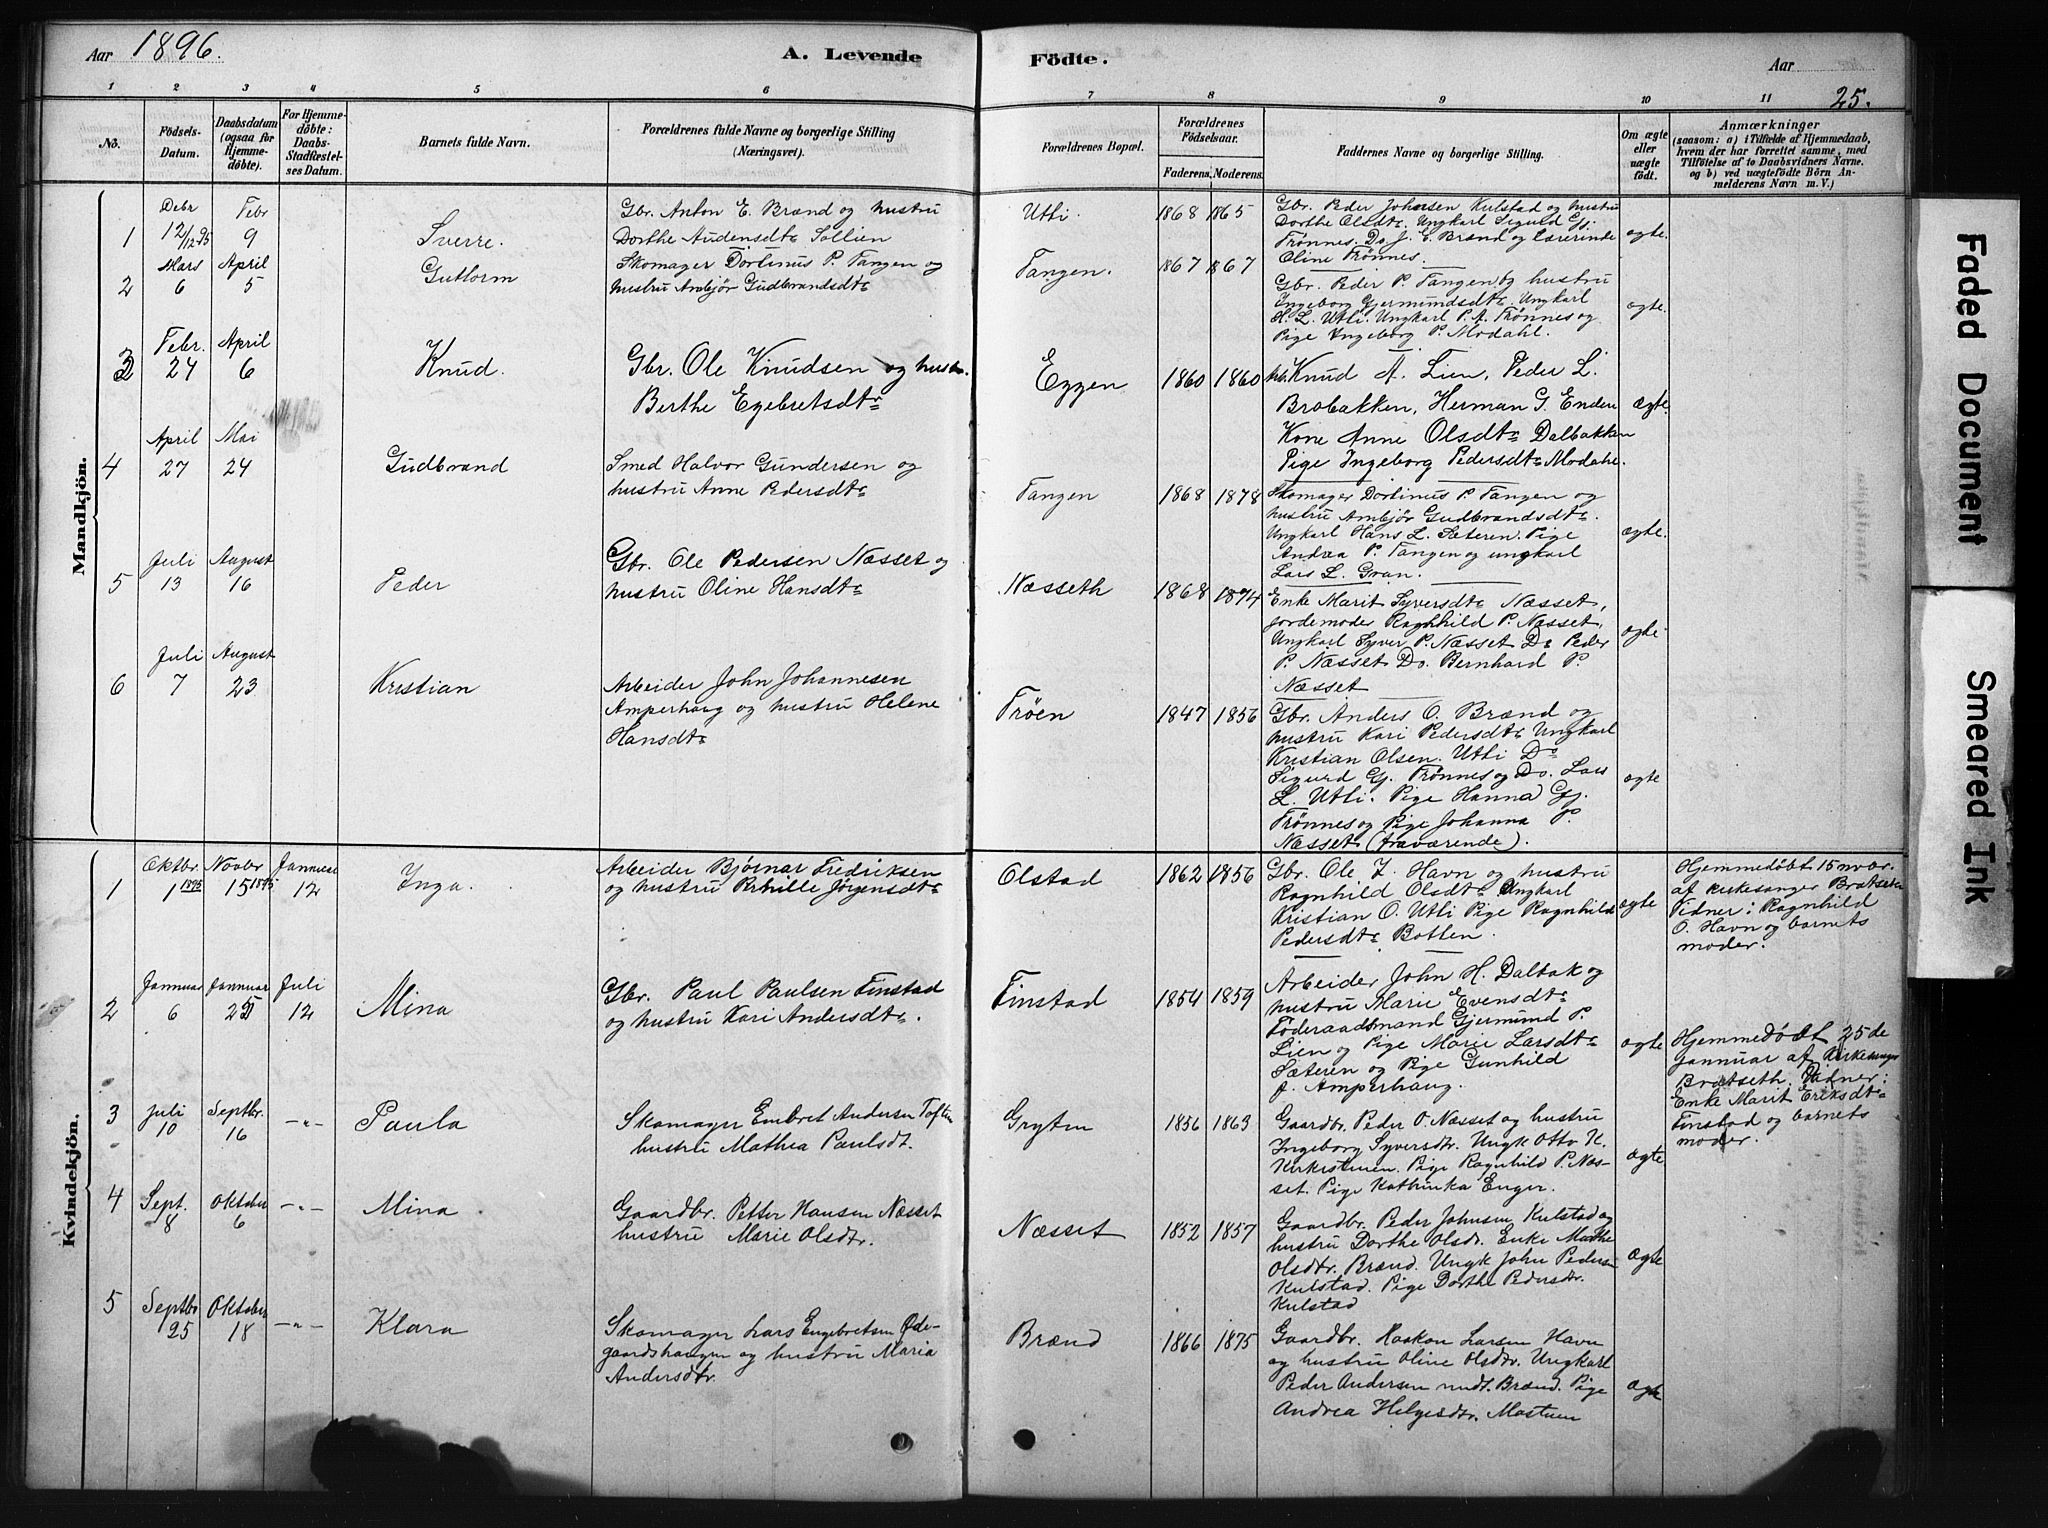 Aar 1896.
A. Levende
Födte.
Aar
25.
1 2 3 4 5 6 7 8 9 10 11
No.
Födsels-Datum.
Daabsdatum (ogsaa for Hjemmedöbte).
For Hjemmedöbte: Daabs-Stadfæstelses Datum.
Barnets fulde Navn.
Forældrenes fulde Navne og borgerlige Stilling (Næringsvei).
Forældrenes Bopæl.
Forældrenes Födselsaar.
Faderens. Moderens.
Faddernes Navne og borgerlige Stilling.
Om ægte eller uægte födt.
Anmærkninger
(saasom: a) i Tilfælde af Hjemmedaab, hvem der har forrettet samme, med Tilföielse af to Daabsvidners Navne. og b) ved uægtefödte Börn Anmelderens Navn m. V.)
Mandkjön.
1 Debr 12/12 95 Febr 9 Sverre.
Gbr. Anton E. Brænd og hustru
Dorthe Audensdtr Sollien
Utli. 1868 1865
Gbr. Peder Johnsen Kulstad og hustru
Dorthe Olsdtr. Ungkarl Sigurd Gj.
Trønnes. Do J. E. Brænd og Lærerinde
Oline Trønnes.
ægte.
2 Mars 6 April 5 Guttorm
Skomager Dortinus P. Tangen og
hustru Ambjør Gudbrandsdtr
Tangen. 1867 1867
Gbr. Peder P. Tangen og hustru
Engeborg Gjermundsdtr. Ungkarl
H. L. Utli. Ungkarl P. A. Trønnes og
Pige Ingeborg P. Modahl.
ægte.
3 Febr. 24 April 6 Knud.
Gbr. Ole Knudsen og hustr.
Berthe Egebretsdtr
Eggen 1860 1860
Knud A. Lien, Peder L.
Brobakken, Herman G. Enden
Kone Anne Olsdtr Dalbakken
Pige Ingeborg Pedersdtr Modahl.
ægte.
4 April 27 Mai 24 Gudbrand
Smed Halvor Gundersen og
hustru Anne Pedersdtr
Tangen 1868 1878
Skomager Dortinus P. Tangen og
hustru Ambjør Gudbrandsdtr.
Ungkarl Hans L. Sæteren. Pige
Andrea P. Tangen og ungkarl
Lars L. Gran.
ægte.
5 Juli 13 August 16 Peder
Gbr. Ole Pedersen Næsset og
hustru Oline Hansdtr
Næsseth 1868 1874
Enke Marit Syversdtr Næsset,
jordemoder Ragnhild P. Næsset,
Ungkarl Syver P. Næsset Do Peder
P. Næsset Do. Bernhard P.
Næsset
ægte.
6 Juli 7 August 23 Kristian
Arbeider John Johannesen
Amperhaug og hustru Helene
Hansdtr
Trøen 1847 1856
Gbr. Anders O. Brænd og
hustru Kari Pedersdtr Ungkarl
Kristian Olsen. Utli Do
Sigurd Gj. Trønnes og Do. Lars
L. Utli. Pige Hanna Gj.
Trønnes og Pige Johanna P.
Næsset (fraværende).
ægte
Kvindekjön.
1 Oktbr. 1 1895 Novbr 15 1895 Jannuar 12 Inga.
Arbeider Bjørnar Fredriksen
og hustru Pernille Jørgensdtr
Olstad 1862 1856
Gbr. Ole J. Havn og hustru
Ragnhild Olsdtr Ungkarl
Kristian O. Utli Pige Ragnhild
Pedersdtr Botten.
ægte
Hjemmedøbt 15 novbr.
af kirkesanger Bratseth
Vidner: Ragnhild
O. Havn og barnets
moder.
2 Jannuar 6 Jannuar 25 Juli 12 Mina
Gbr. Paul Paulsen Finstad
og hustru Kari Andersdtr.
Finstad 1854 1859
Arbeider John H. Dalbak og
hustru Marie Evensdtr
Føderaadsmand Gjermund P.
Lien og Pige Marie Larsdtr
Sæteren og Pige Gunhild
J. Amperhaug.
ægte
Hjemmedøbt 25de
jannuar af Kirkesanger
Bratseth. Vidner:
Enke Marit Eriksdtr
Finstad og barnets
moder.
3 Juli 10 Septbr. 16 -"- Paula
Skomager Embret Andersen Toften
hustru Mathea Paulsdt.
Gryten 1856 1863
Gaardbr. Peder O. Næsset og hustru
Ingeborg Syversdtr. Ungk Otto K.
Kirkestuen. Pige Ragnhild P. Næs-
set. Pige Kathinka Enger.
ægte
4 Sept. 8 Oktober 6 -"- Mina
Gaardbr. Petter Hansen Næsset
hustru Marie Olsdtr.
Næsset 1852 1857
Gaardbr. Peder Johnsen Kulstad og
hustru Dorthe Olsdr. Enke Marthe
Olsdtr. Brænd. Ungk John Pedersen
Kulstad. Pige Dorthe Pedersdtr.
Kulstad
Ægte
5 Septbr 25 Oktober 18 -"- Klara
Skomager Lars Engebretsen Øde-
gaardshaugen og hustru Maria
Andersdtr.
Brænd 1866 1875
Gaardbr. Haakon Larsen Havn
og hustru Oline Olsdtr. Ungkarl
Peder Andersen Brænd. Pige
Andrea Helgesdtr. Mostuen
Ægte
Faded Document
Smeared Ink